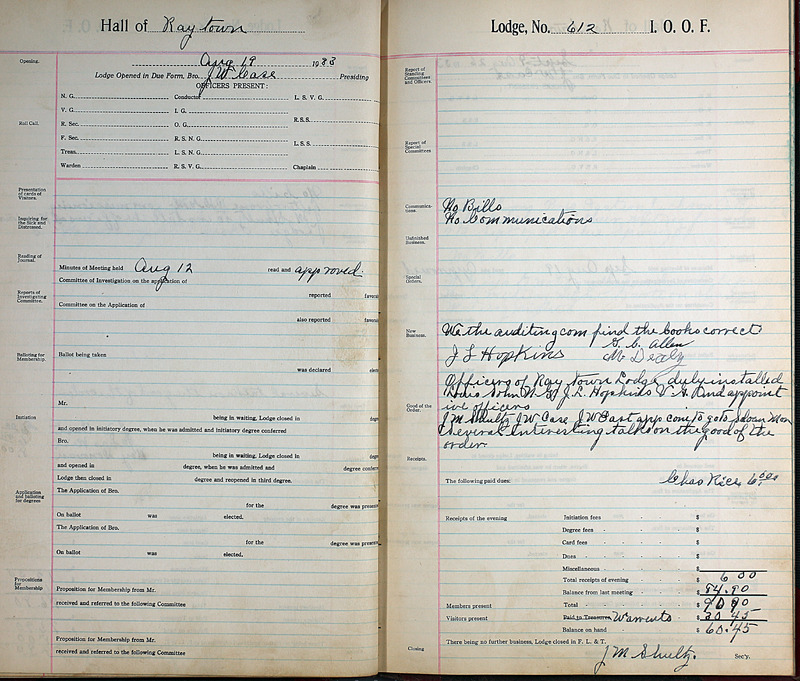 Hall of Raytown
Opening.
Aug 19 1933
Lodge Opened in Due Form, Bro. J W Case Presiding
OFFICERS PRESENT:
N. G. Conductor L. S. V. G.
V. G. I. G.
Roll Call.
R. Sec. O. G. R.S.S.
F. Sec. R. S. N. G.
Treas. L. S. N. G. L.S.S.
Warden R. S. V. G. Chaplain
Presentation of cards of Visitors.
Inquiring for the Sick and Distressed.
Reading of Journal.
Minutes of Meeting held Aug 12 read and approved.
Committee of Investigation on the application of
Reports of Investigating Committee.
reported
Committee on the Application of
also reported
Balloting for Membership.
Ballot being taken
was declared
Mr.
Initiation
being in waiting. Lodge closed in
and opened in initiatory degree, when he was admitted and initiatory degree conferred
Bro.
being in waiting. Lodge closed in
and opened in degree, when he was admitted and degree
Lodge then closed in degree and reopened in third degree.
Application and balloting for degrees
The Application of Bro.
for the degree was
On ballot was elected.
The Application of Bro.
for the degree was
On ballot was elected.
Propositions for Membership
Proposition for Membership from Mr.
received and referred to the following Committee
Proposition for Membership from Mr.
received and referred to the following Committee
Lodge, No. 612 I. O. O. F.
Report of Standing Committees and Officers.
Report of Special Committees
Communications.
No Bills
No Communications
Unfinished Business.
Special Orders.
New Business.
We the auditing com find the books correct
G. C. Allen
J L Hopkins
Officers of Ray town Lodge duly installed
John N.G. J. L. Hopkins V. G. And appoint
ive officers
Good of the Order.
J M Shultz J W Case J W East app com to
Several Interesting talks on the good of the
order.
Receipts.
The following paid dues: Chas Rice 6.00
Receipts of the evening Initiation fees $
Degree fees $
Card fees $
Dues $
Miscellaneous $
Total receipts of evening 6 00
Balance from last meeting $ 84.90
Members present Total $ 90 90
Visitors present Paid to Treasurer Warrents $ 30 45
Balance on hand $ 60.45
Closing
There being no further business, Lodge closed in F. L. & T.
J M Shultz. Sec'y.